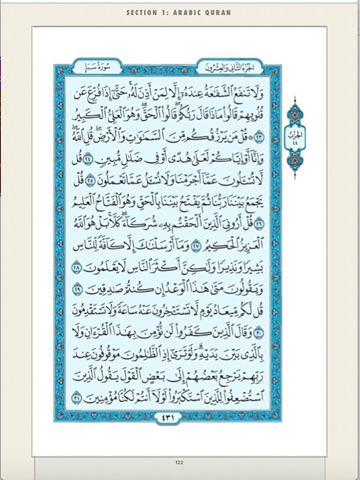 SECTION 1: ARABIC QURAN
سُورَةُ سَبَإٍ
الجُزْءُ الثَّانِي وَالعِشْرُونَ
وَلَا تَنفَعُ الشَّفَٰعَةُ عِندَهُۥٓ إِلَّا لِمَنْ أَذِنَ لَهُۥ ۚ حَتَّىٰٓ إِذَا فُزِّعَ عَن
قُلُوبِهِمْ قَالُوا۟ مَاذَا قَالَ رَبُّكُمْ ۖ قَالُوا۟ الْحَقَّ ۖ وَهُوَ الْعَلِىُّ الْكَبِيرُ
٢٣ ۞ قُلْ مَن يَرْزُقُكُم مِّنَ السَّمَٰوَٰتِ وَالْأَرْضِ ۖ قُلِ اللَّهُ ۖ
وَإِنَّآ أَوْ إِيَّاكُمْ لَعَلَىٰ هُدًى أَوْ فِى ضَلَٰلٍ مُّبِينٍ ٢٤ قُل
لَّا تُسْـَٔلُونَ عَمَّآ أَجْرَمْنَا وَلَا نُسْـَٔلُ عَمَّا تَعْمَلُونَ ٢٥ قُلْ
يَجْمَعُ بَيْنَنَا رَبُّنَا ثُمَّ يَفْتَحُ بَيْنَنَا بِالْحَقِّ وَهُوَ الْفَتَّاحُ الْعَلِيمُ
٢٦ قُلْ أَرُونِىَ الَّذِينَ أَلْحَقْتُم بِهِۦ شُرَكَآءَ ۖ كَلَّا ۚ بَلْ هُوَ اللَّهُ
الْعَزِيزُ الْحَكِيمُ ٢٧ وَمَآ أَرْسَلْنَٰكَ إِلَّا كَآفَّةً لِّلنَّاسِ
بَشِيرًا وَنَذِيرًا وَلَٰكِنَّ أَكْثَرَ النَّاسِ لَا يَعْلَمُونَ ٢٨
وَيَقُولُونَ مَتَىٰ هَٰذَا الْوَعْدُ إِن كُنتُمْ صَٰدِقِينَ ٢٩
قُل لَّكُم مِّيعَادُ يَوْمٍ لَّا تَسْتَـْٔخِرُونَ عَنْهُ سَاعَةً وَلَا تَسْتَقْدِمُونَ
٣٠ وَقَالَ الَّذِينَ كَفَرُوا۟ لَن نُّؤْمِنَ بِهَٰذَا الْقُرْءَانِ وَلَا
بِالَّذِى بَيْنَ يَدَيْهِ ۗ وَلَوْ تَرَىٰٓ إِذِ الظَّٰلِمُونَ مَوْقُوفُونَ عِندَ
رَبِّهِمْ يَرْجِعُ بَعْضُهُمْ إِلَىٰ بَعْضٍ الْقَوْلَ يَقُولُ الَّذِينَ
اسْتُضْعِفُوا۟ لِلَّذِينَ اسْتَكْبَرُوا۟ لَوْلَآ أَنتُمْ لَكُنَّا مُؤْمِنِينَ ٣١
الحِزْبُ
٤٤
٤٣١
122